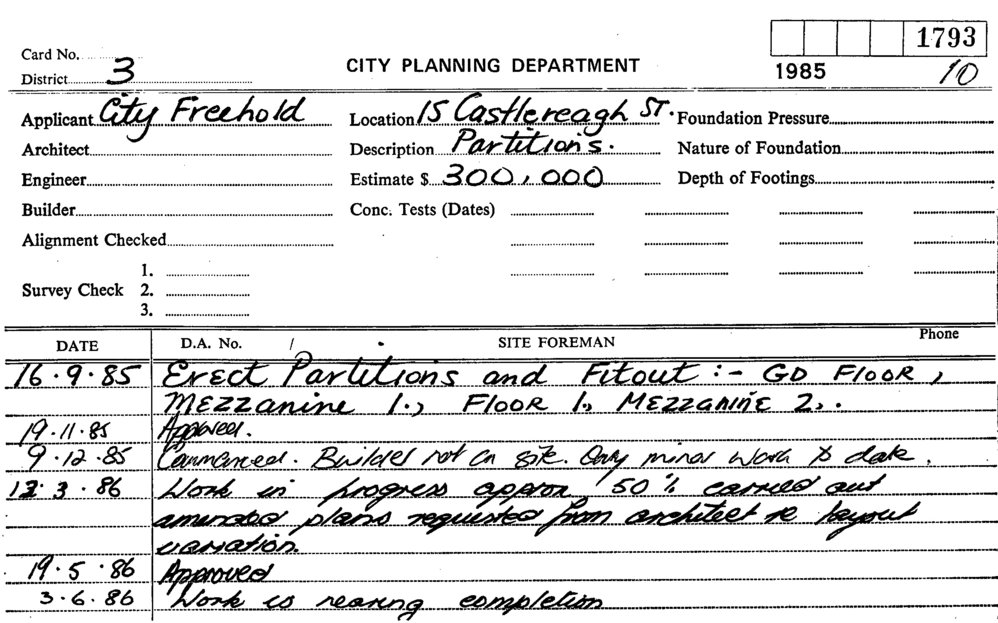 Card No.
1793
District 3
CITY PLANNING DEPARTMENT
1985
10
Applicant City Freehold
Location 15 Castlereagh ST.
Foundation Pressure
Architect
Description Partitions.
Nature of Foundation
Engineer
Estimate $ 300,000
Depth of Footings
Builder
Conc. Tests (Dates)
Alignment Checked
1.
Survey Check 2.
3.
DATE D.A. No. / SITE FOREMAN Phone
16.9.85 Erect Partitions and Fitout :- GD FLOOR,
MEZZanine 1., FLOOR 1., MEZZANINE 2,.
19.11.85 Approved.
9.12.85 Commenced. Builder not on site. Only minor work to date.
12.3.86 Work in progress approx 50% carried out
amended plans requested from architect re layout
variation.
19.5.86 Approved
3.6.86 Work is nearing completion